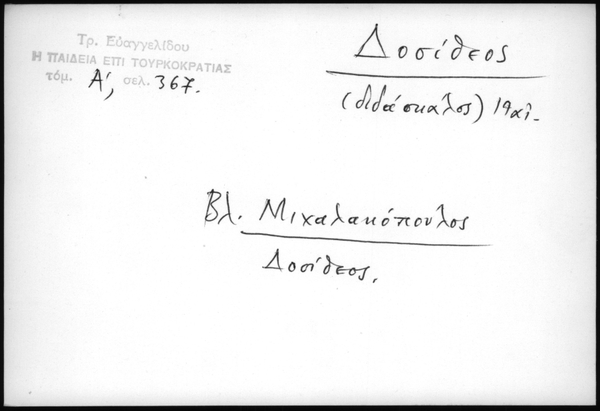 Τρ. Εὐαγγελίδου
Η ΠΑΙΔΕΙΑ ΕΠΙ ΤΟΥΡΚΟΚΡΑΤΙΑΣ
τόμ. Α', σελ. 367.
Δοσίθεος
(διδάσκαλος) 19 αἰ.
Βλ. Μιχαλακόπουλος
Δοσίθεος.